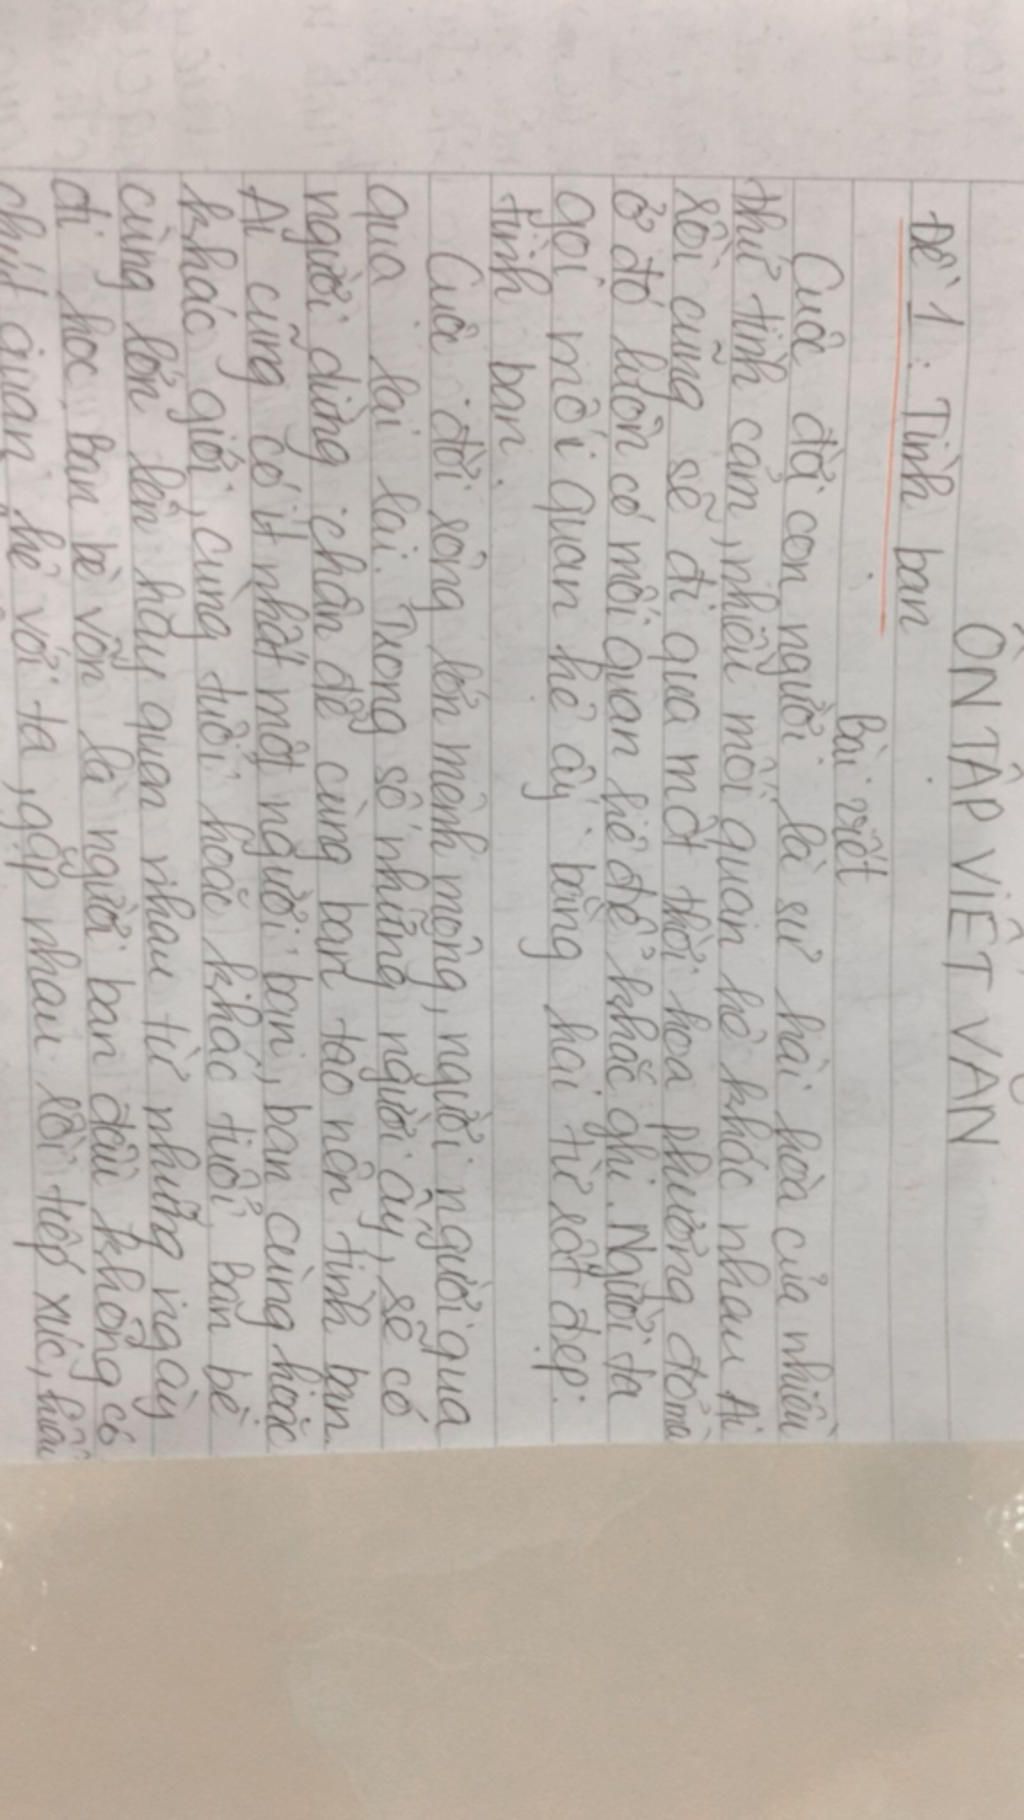 ÔN TẬP VIẾT VĂN
Đề 1: Tình bạn
Bài viết
Cuộc đời con người là sự hài hòa của nhiều
thứ tình cảm, nhiều mối quan hệ khác nhau. Ai
rồi cũng sẽ đi qua một thời hoa phượng đỏ mà
ở đó luôn có mối quan hệ để khắc ghi. Người ta
gọi mối quan hệ ấy bằng hai từ rất đẹp:
tình bạn.
Cuộc đời rộng lớn mênh mông, người người qua
qua lại lại. Trong số những người ấy, sẽ có
người dừng chân để cùng bạn tạo nên tình bạn.
Ai cũng có ít nhất một người bạn, bạn cùng hoặc
khác giới, cùng tuổi hoặc khác tuổi, bạn bè
cùng lớn lên hay quen nhau từ những ngày
đi học. Bạn bè vốn là người ban đầu không có
chút quan hệ với ta, gặp nhau rồi tiếp xúc, hiểu